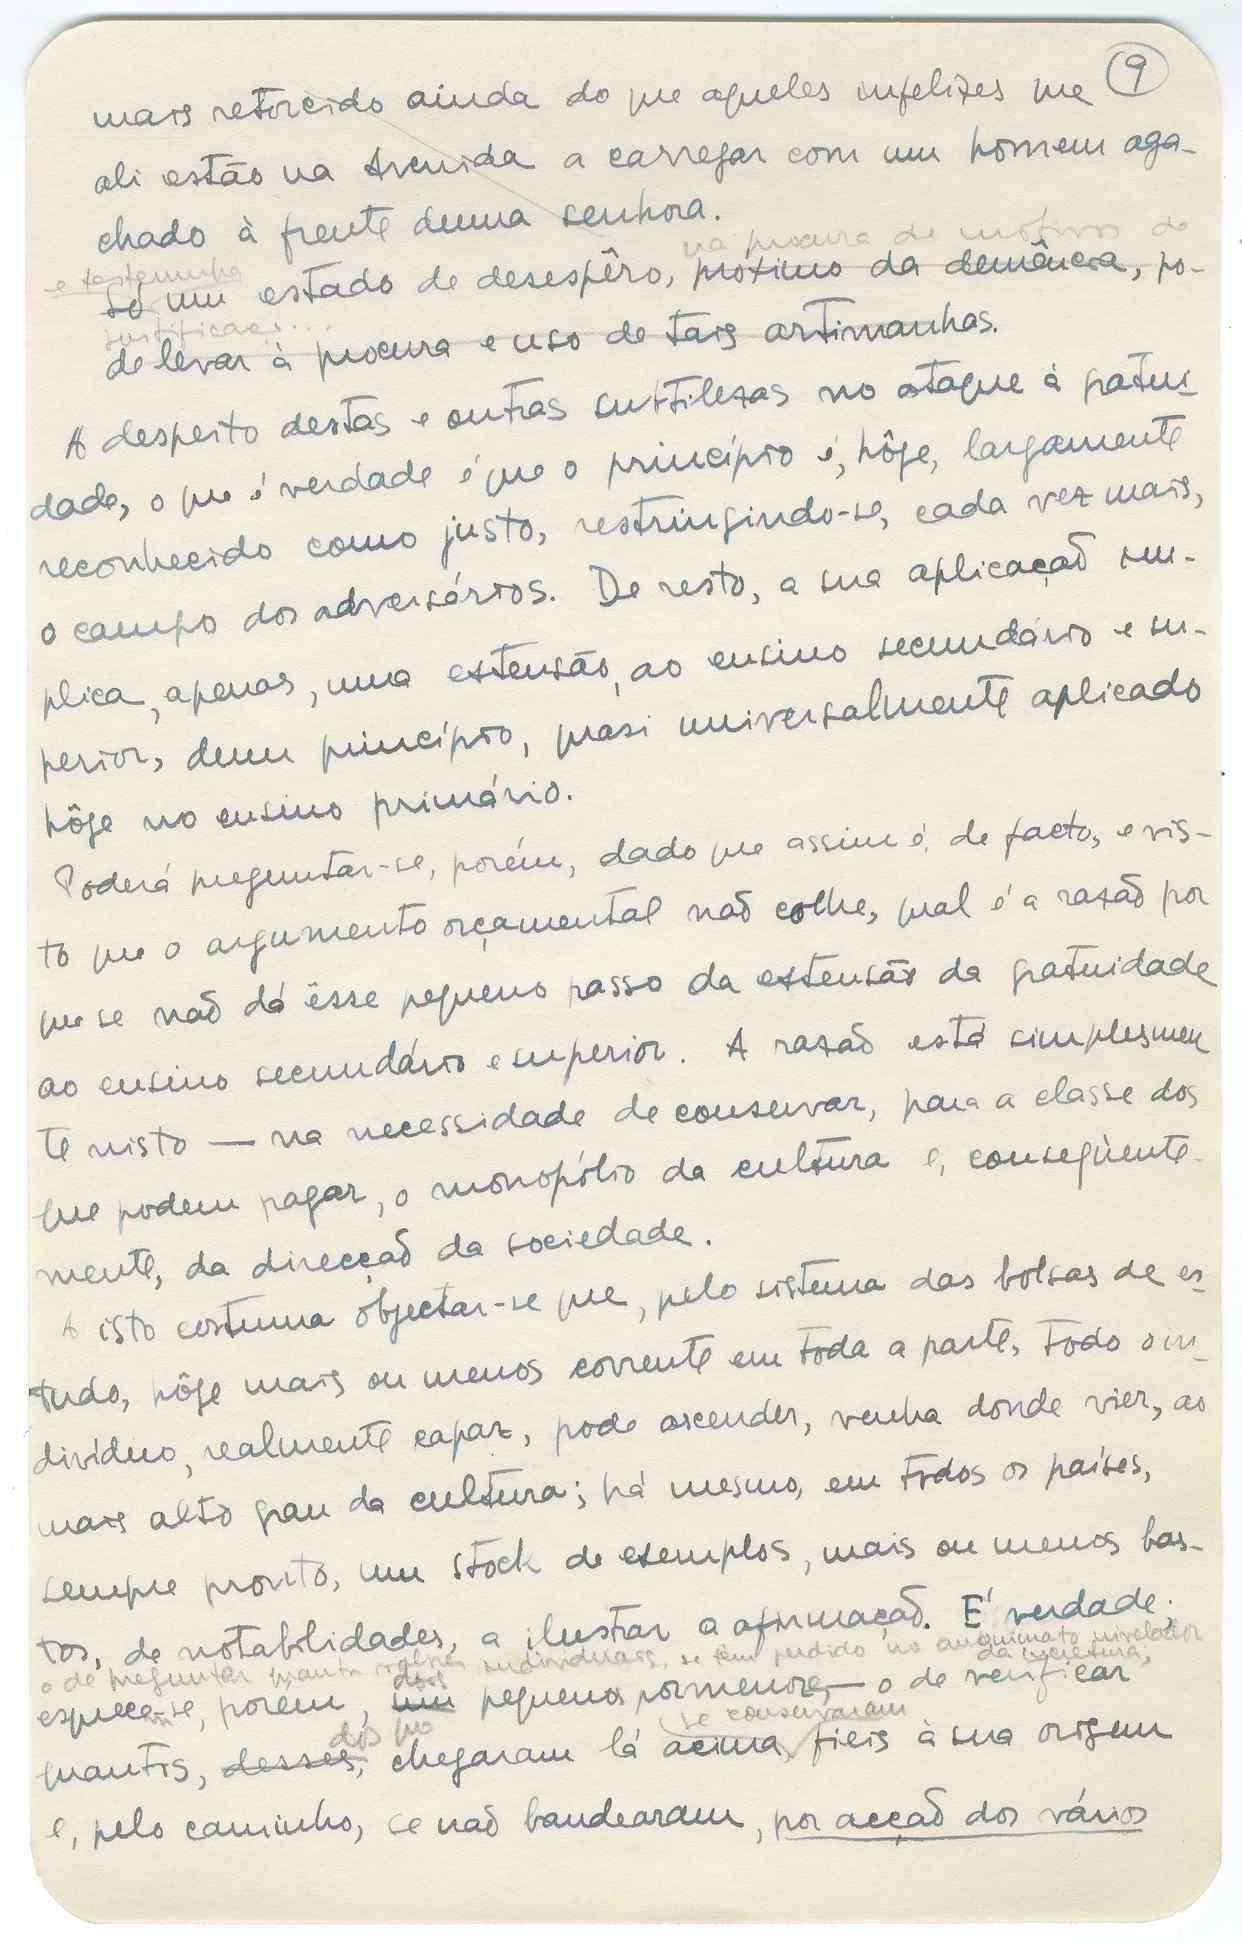 9
mais retorcido ainda do que aqueles infelizes que
ali estão na Avenida a carregar com um homem aga-
chado à frente duma senhora.
na procura de motivos de
e testemunha
só um estado de desespêro, próximo da demência, po-
justificações...
de levar à procura e uso de tais artimanhas.
A despeito destas e outras subtilezas no ataque à gratui-
dade, o que é verdade é que o princípio é, hôje, largamente
reconhecido como justo, restringindo-se, cada vez mais,
o campo dos adversários. De resto, a sua aplicação im-
plica, apenas, uma extensão, ao ensino secundário e su-
perior, dum princípio, quasi universalmente aplicado
hôje no ensino primário.
Poderá preguntar-se, porém, dado que assim é, de facto, e vis-
to que o argumento orçamental não colhe, qual é a razão por
que se não dá êsse pequeno passo da extensão da gratuidade
ao ensino secundário e superior. A razão está simplesmen
te nisto — na necessidade de conservar, para a classe dos
que podem pagar, o monopólio da cultura e, conseqüente-
mente, da direcção da sociedade.
A isto costuma objectar-se que, pelo sistema das bolsas de es-
tudo, hôje mais ou menos corrente em toda a parte, todo o in-
divíduo, realmente capaz, pode ascender, venha donde vier, ao
mais alto grau da cultura; há mesmo, em todos os países,
sempre pronto, um stock de exemplos, mais ou menos bas-
tos, de notabilidades, a ilustrar a afirmação. É verdade;
o de preguntar quantos valores individuais, se têm perdido no anonimato nivelador
da incultura,
dois
esquecem-se, porém, um pequenos pormenores — o de verificar
dos que
se conservaram
quantos, desses, chegaram lá acima, fieis à sua origem
e, pelo caminho, se não bandearam, por acção dos vários